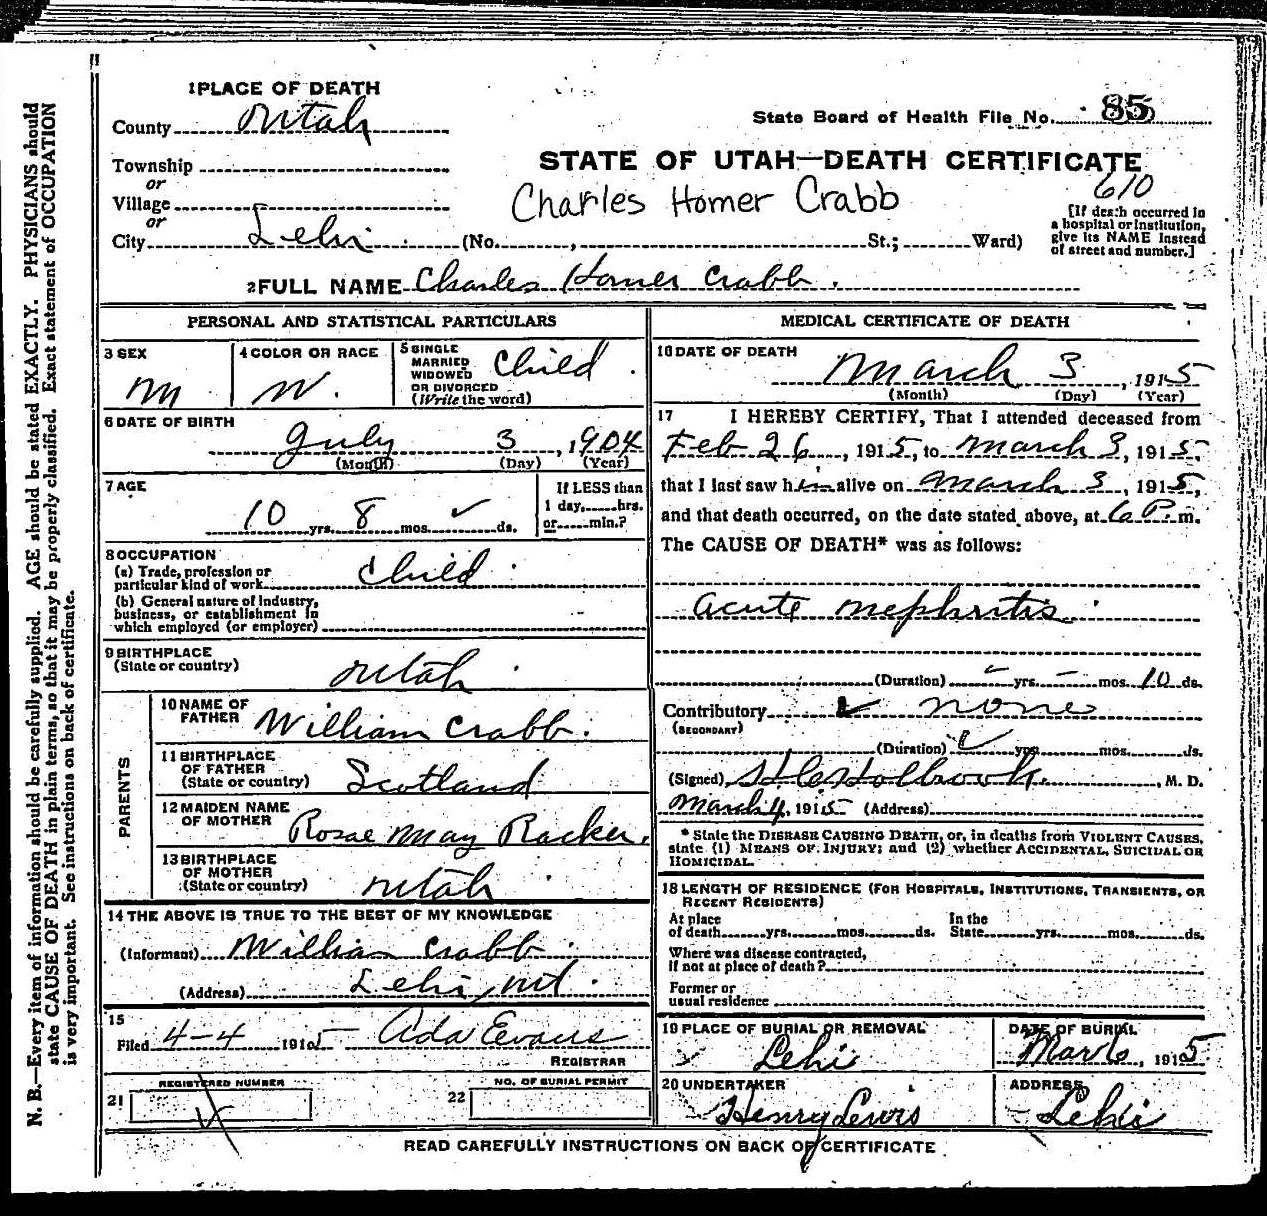 1 PLACE OF DEATH
County Utah
Township
or
Village
or
City Lehi (No. , St.; Ward)
State Board of Health File No. 85
STATE OF UTAH—DEATH CERTIFICATE
610
Charles Homer Crabb
[If death occurred in
a hospital or institution,
give its NAME instead
of street and number.]
2 FULL NAME Charles Homer Crabb.
PERSONAL AND STATISTICAL PARTICULARS
3 SEX
M
4 COLOR OR RACE
W.
5 SINGLE
MARRIED
WIDOWED
OR DIVORCED
(Write the word)
Child.
6 DATE OF BIRTH
July 3, 1904
(Month) (Day) (Year)
7 AGE
10 yrs. 8 mos. ✓ ds.
If LESS than
1 day, hrs.
or min.?
8 OCCUPATION
(a) Trade, profession or
particular kind of work Child.
(b) General nature of industry,
business, or establishment in
which employed (or employer)
9 BIRTHPLACE
(State or country)
Utah.
PARENTS
10 NAME OF
FATHER William Crabb.
11 BIRTHPLACE
OF FATHER
(State or country) Scotland
12 MAIDEN NAME
OF MOTHER Rosae May Racker.
13 BIRTHPLACE
OF MOTHER
(State or country) Utah
14 THE ABOVE IS TRUE TO THE BEST OF MY KNOWLEDGE
(Informant) William Crabb.
(Address) Lehi, Ut.
15
Filed 4-4 1915 Ada Evans
REGISTRAR
REGISTERED NUMBER
21
NO. OF BURIAL PERMIT
22
MEDICAL CERTIFICATE OF DEATH
16 DATE OF DEATH
March 3, 1915
(Month) (Day) (Year)
17 I HEREBY CERTIFY, That I attended deceased from
Feb 26, 1915, to March 3, 1915.
that I last saw him alive on March 3, 1915,
and that death occurred, on the date stated above, at 6 P. m.
The CAUSE OF DEATH* was as follows:
Acute Nephritis.
(Duration) – yrs. – mos. 10 ds.
Contributory none
(SECONDARY)
(Duration) ✓ yrs. mos. ds.
(Signed) Holbrook. , M. D.
March 4, 1915 (Address)
* State the DISEASE CAUSING DEATH, or, in deaths from VIOLENT CAUSES,
state (1) MEANS OF INJURY; and (2) whether ACCIDENTAL, SUICIDAL OR
HOMICIDAL.
18 LENGTH OF RESIDENCE (FOR HOSPITALS, INSTITUTIONS, TRANSIENTS, OR
RECENT RESIDENTS)
At place
of death yrs. mos. ds.
In the
State yrs. mos. ds.
Where was disease contracted,
if not at place of death?
Former or
usual residence
19 PLACE OF BURIAL OR REMOVAL
Lehi
DATE OF BURIAL
Mar 6, 1915
20 UNDERTAKER
Henry Lewis
ADDRESS
Lehi
READ CAREFULLY INSTRUCTIONS ON BACK OF CERTIFICATE
N. B.—Every item of information should be carefully supplied. AGE should be stated EXACTLY. PHYSICIANS should
state CAUSE OF DEATH in plain terms, so that it may be properly classified. Exact statement of OCCUPATION
is very important. See instructions on back of certificate.